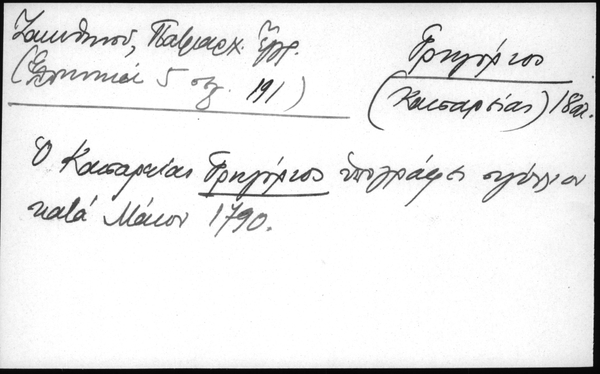 Ζακυθηνού, Πατριαρχ. Ἔγγρ.
(Ἑλληνικά 5 σελ. 191)
Γρηγόριος
(Καισαρείας) 18 αι.
Ὁ Καισαρείας Γρηγόριος ὑπογράφει σιγίλλιον
κατά Μάιον 1790.